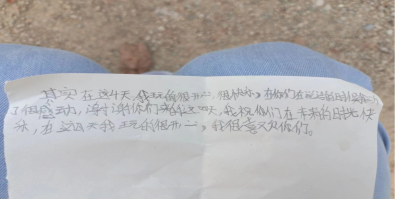 其实在这4天,我玩的很开心,很快乐,在你们在
了很感动,谢谢你们来 天,我祝你们在未来的时光快
乐,在这四天我玩的很开心,我很喜欢你们。